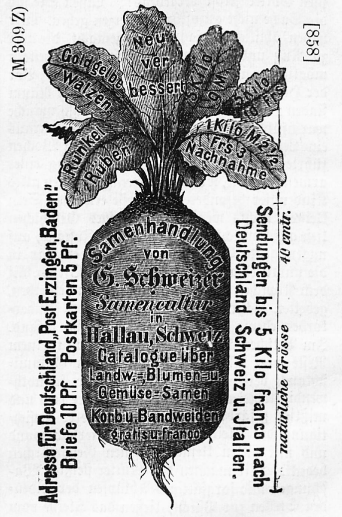 (M 309 Z)
[858]
Goldgelbe
Walzen
Runkel
Rüben
Neu
ver
bessert
5 Kilo
9 M.
5 Kilo
10 Frs.
1 Kilo M 2½
Frs 3
Nachnahme
Samenhandlung
von
G. Schweizer
Samencultur
in
Hallau, Schweiz
Catalogue über
Landw.-, Blumen- u.
Gemüse-Samen
Korb u. Bandweiden
gratis u franco
Adresse für Deutschland, Post Erzingen, Baden"
Briefe 10 Pf. Postkarten 5 Pf.
Sendungen bis 5 Kilo franco nach
Deutschland Schweiz u. Jtalien.
natürliche Grösse 40 cmtr.